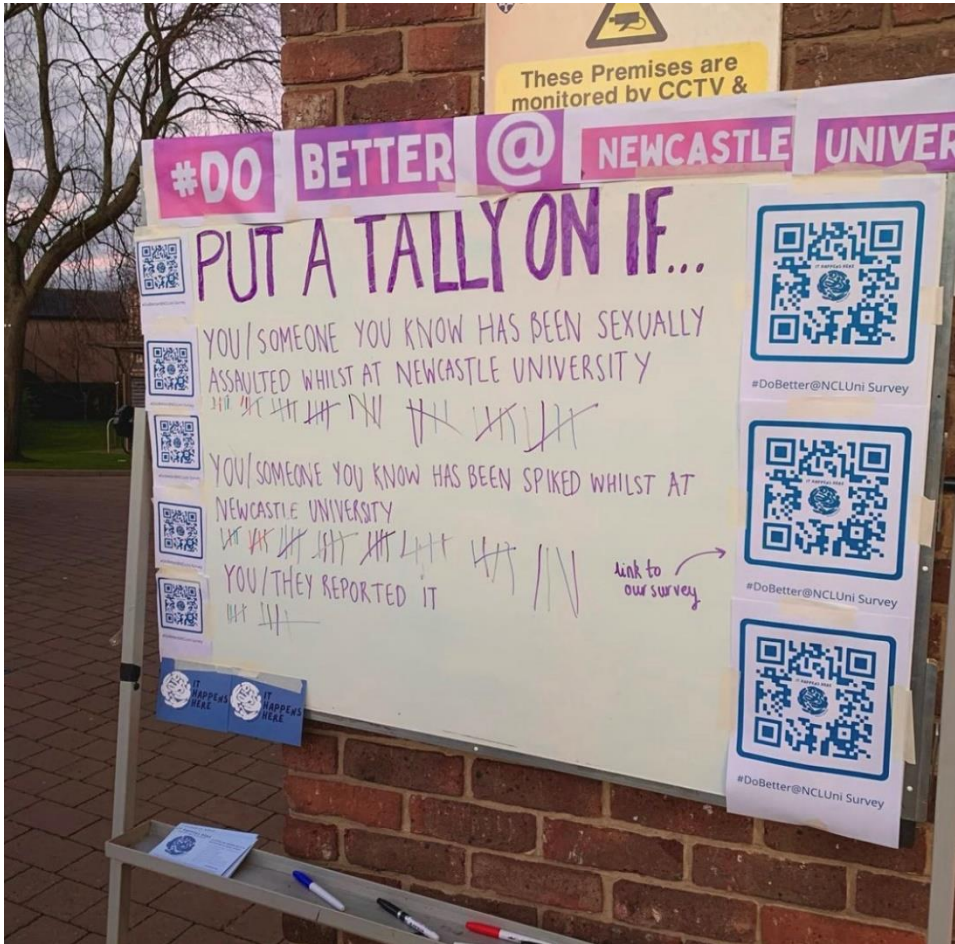 These Premises are
monitored by CCTV &
#DO BETTER @ NEWCASTLE UNIVER
PUT A TALLY ON IF...
YOU/SOMEONE YOU KNOW HAS BEEN SEXUALLY
ASSAULTED WHILST AT NEWCASTLE UNIVERSITY
YOU/SOMEONE YOU KNOW HAS BEEN SPIKED WHILST AT
NEWCASTLE UNIVERSITY
YOU/THEY REPORTED IT
link to
our survey
IT HAPPENS HERE
#DoBetter@NCLUni Survey
IT HAPPENS HERE
#DoBetter@NCLUni Survey
IT HAPPENS HERE
#DoBetter@NCLUni Survey
IT
HAPPENS
HERE
IT
HAPPENS
HERE